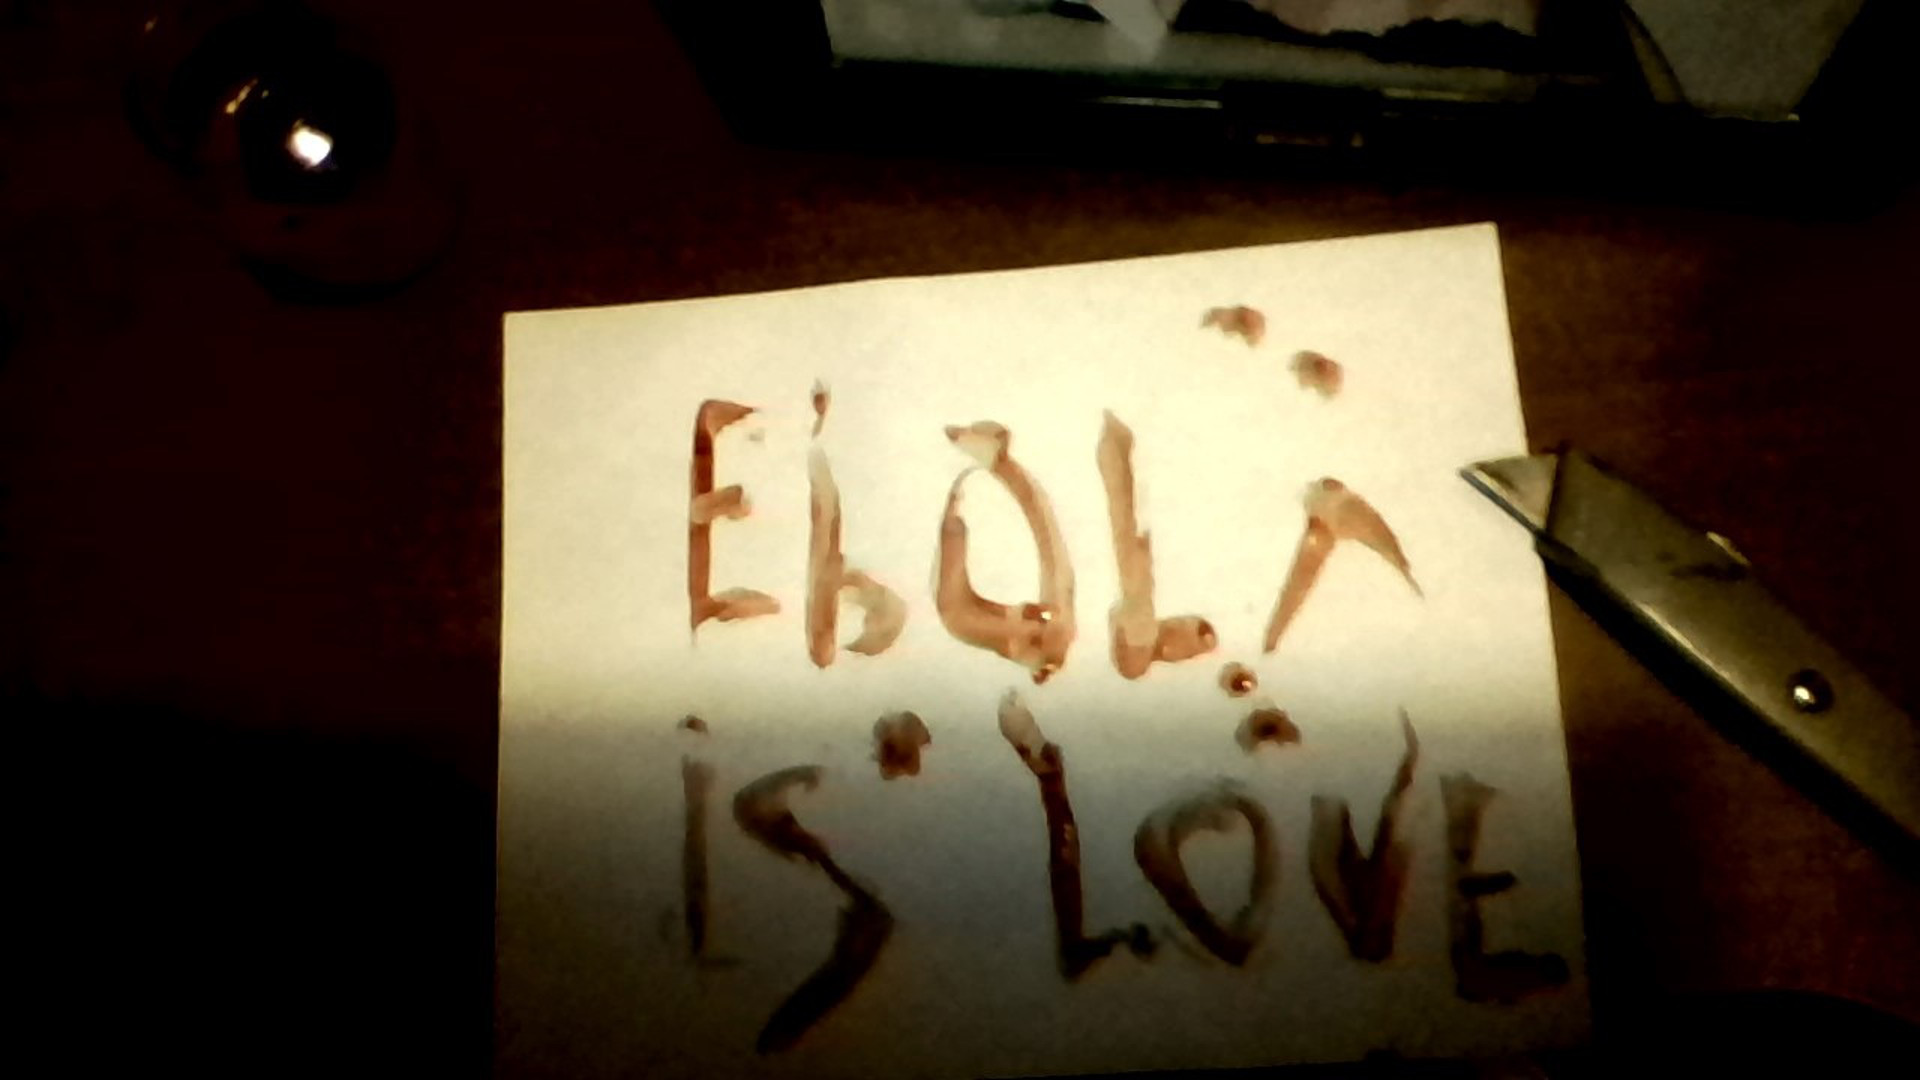 EbOLA
iS LOVE